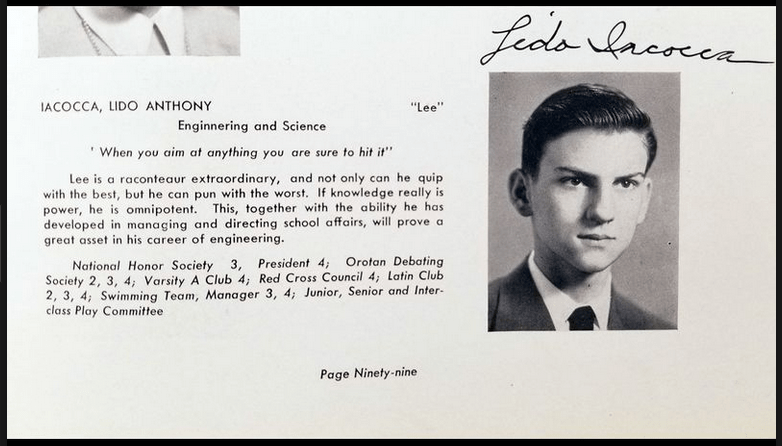 Lido Iacocca
IACOCCA, LIDO ANTHONY "Lee"
Enginnering and Science
' When you aim at anything you are sure to hit it"
Lee is a raconteur extraordinary, and not only can he quip
with the best, but he can pun with the worst. If knowledge really is
power, he is omnipotent. This, together with the ability he has
developed in managing and directing school affairs, will prove a
great asset in his career of engineering.
National Honor Society 3, President 4; Orotan Debating
Society 2, 3, 4; Varsity A Club 4; Red Cross Council 4; Latin Club
2, 3, 4; Swimming Team, Manager 3, 4; Junior, Senior and Inter-
class Play Committee
Page Ninety-nine